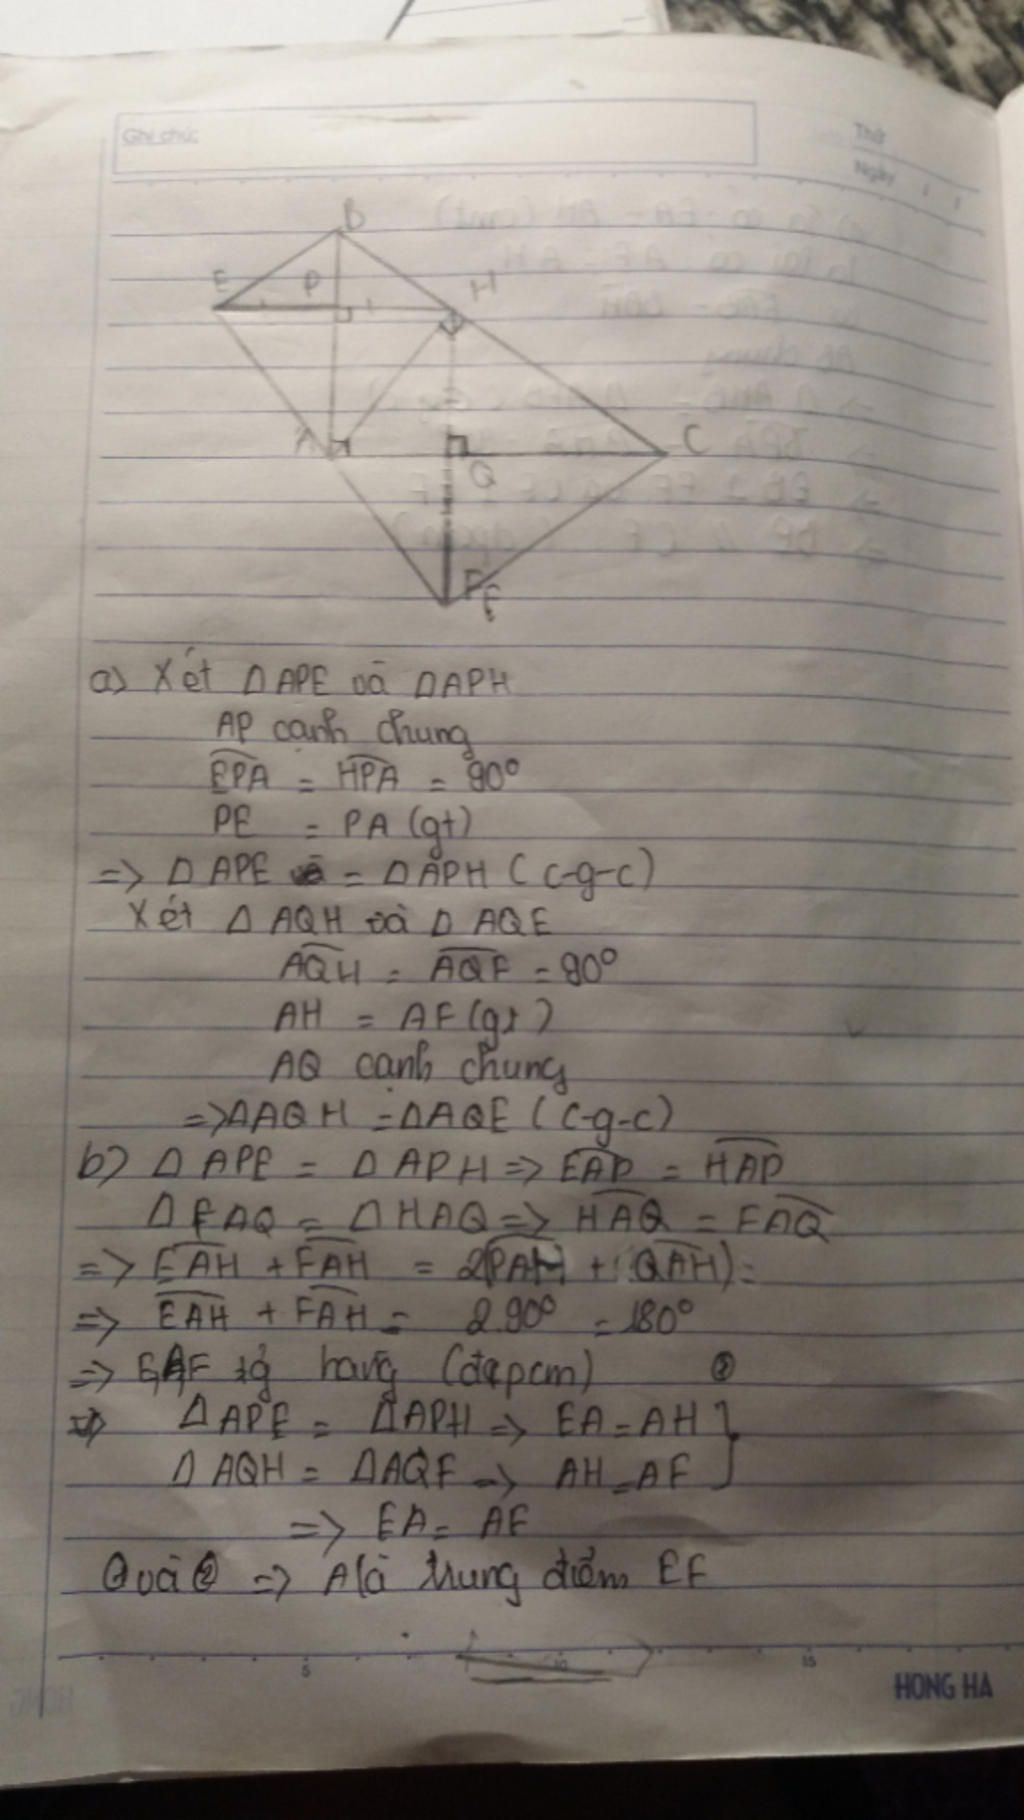 Ghi chú:
Thứ
Ngày / /
B
E P H
A C
Q
F
a) Xét Δ APE và Δ APH
AP cạnh chung
EPA = HPA = 90°
PE = PA (gt)
=> Δ APE = Δ APH (c-g-c)
Xét Δ AQH và Δ AQE
AQH = AQF = 90°
AH = AF (gt)
AQ cạnh chung
=> Δ AQH = Δ AQE (c-g-c)
b) Δ APE = Δ APH => EAP = HAP
Δ FAQ = Δ HAQ => HAQ = FAQ
=> EAH + FAH = 2(PAH + QAH) =
=> EAH + FAH = 2.90° = 180°
=> hang (đpcm) ②
Δ APE = Δ APH => EA = AH }
Δ AQH = Δ AQF => AH = AF
=> EA = AF
① và ② => A là trung điểm EF
5 10 15
HONG HA